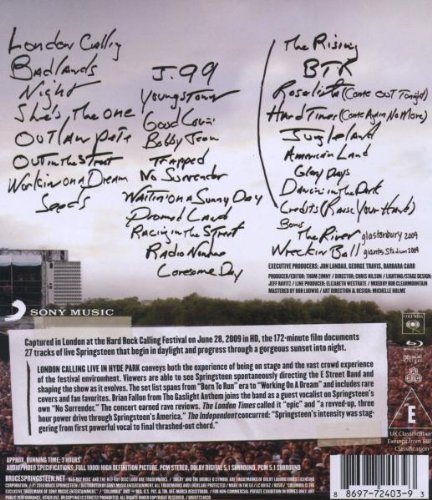 London Calling
Badlands
Night
She's The One
Outlaw Pete
Out in the Street
Workin on a Dream
Seeds
J. 99
Youngstown
Good Lovin'
Bobby Jean
Trapped
No Surrender
Waitin on a Sunny Day
Promised Land
Racing in the Street
Radio Nowhere
Lonesome Day
The Rising
BTR
Rosalita (Come Out Tonight)
Hard Times (Come Again No More)
Jungleland
American Land
Glory Days
Dancin in the Dark
Credits (Raise Your Hand)
Bonus
The River glastonbury 2009
Wreckin Ball giants stadium 2009
EXECUTIVE PRODUCERS: JON LANDAU, GEORGE TRAVIS, BARBARA CARR
PRODUCER/EDITOR: THOM ZIMNY / DIRECTOR: CHRIS HILSON / LIGHTING/STAGE DESIGN:
JEFF RAVITZ / LINE PRODUCER: ELIZABETH WESTRATE / MIXED BY BOB CLEARMOUNTAIN
MASTERED BY BOB LUDWIG / ART DIRECTION & DESIGN: MICHELLE HOLME
SONY MUSIC
COLUMBIA
Captured in London at the Hard Rock Calling Festival on June 28, 2009 in HD, the 172-minute film documents
27 tracks of live Springsteen that begin in daylight and progress through a gorgeous sunset into night.
LONDON CALLING LIVE IN HYDE PARK conveys both the experience of being on stage and the vast crowd experience
of the festival environment. Viewers are able to see Springsteen spontaneously directing the E Street Band and
shaping the show as it evolves. The set list spans from "Born To Run" era to "Working On A Dream" and includes rare
covers and fan favorites. Brian Fallon from The Gaslight Anthem joins the band as a guest vocalist on Springsteen's
own "No Surrender." The concert earned rave reviews. The London Times called it "epic" and "a revved-up, three
hour power drive through Springsteen's America." The Independent concurred: "Springsteen's intensity was stag-
gering from first powerful vocal to final thrashed-out chord."
E
UK Classification
Exempt from
Classification
APPROX. RUNNING TIME: 3 HOURS
AUDIO/VIDEO SPECIFICATIONS: FULL 1080i HIGH DEFINITION PICTURE, PCM STEREO, DOLBY DIGITAL 5.1 SURROUND, PCM 5.1 SURROUND
BRUCESPRINGSTEEN.NET
8 86977 24039 3